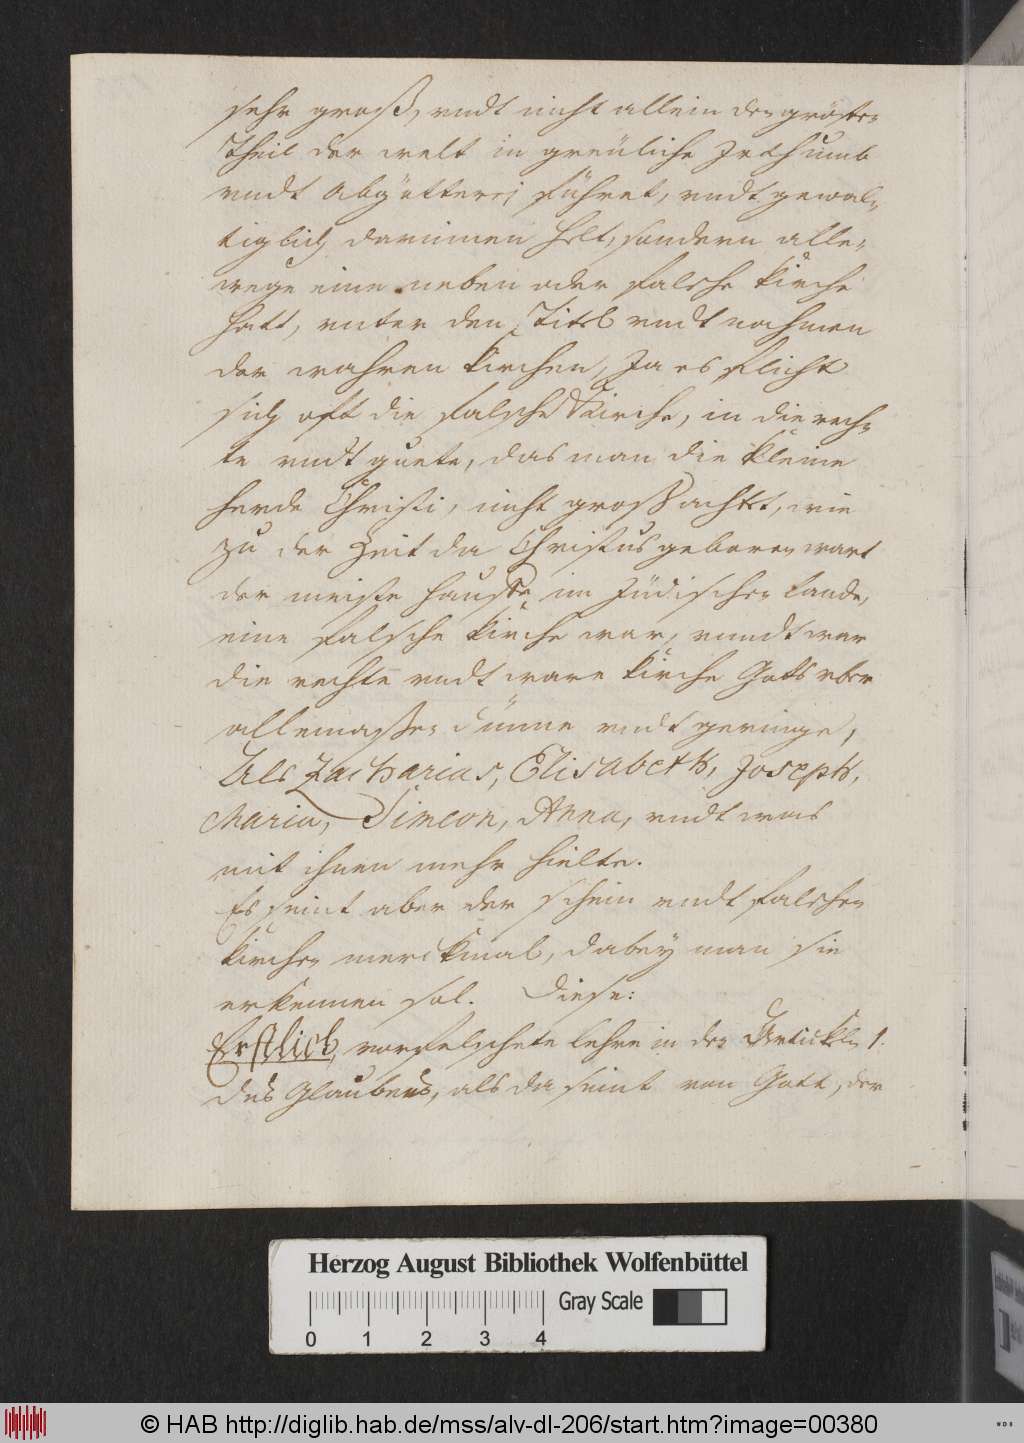 sehr groß, vndt nicht allein den grösten
Theil der welt in greüliche Irthumb
vndt Abgötterej führet, vndt gewal„
tiglich darinnen helt, sondern alle„
wege eine neben oder falsche Kirche
hatt, vnter den Titel vndt nahmen
der wahren Kirchen, Ja es flicht
sich oft die falsche Kirche, in die rech„
te vndt guete, das man die kleine
herde Christi, nicht groß achtet, wie
zu der Zeit da Christus geboren wart
der meiste hauffe im Jüdischen Lande,
eine falsche Kirche war, vnndt war
die rechte vndt ware Kirche Gotts vber
alle massen dünne vndt geringe,
Als Zacharias, Elisabeth, Joseph,
Maria, Simeon, Anna, vndt was
mit ihnen mehr hielte.
Es seint aber der schein vndt falschen
Kirchen merckmal, dabey man sie
erkennen sol. Diese:
Erstlich, vorfelschete lehre in den Artickln 1.
des Glaubens, als da seint von Gott, der
Herzog August Bibliothek Wolfenbüttel
Gray Scale
0 1 2 3 4
© HAB http://diglib.hab.de/mss/alv-dl-206/start.htm?image=00380